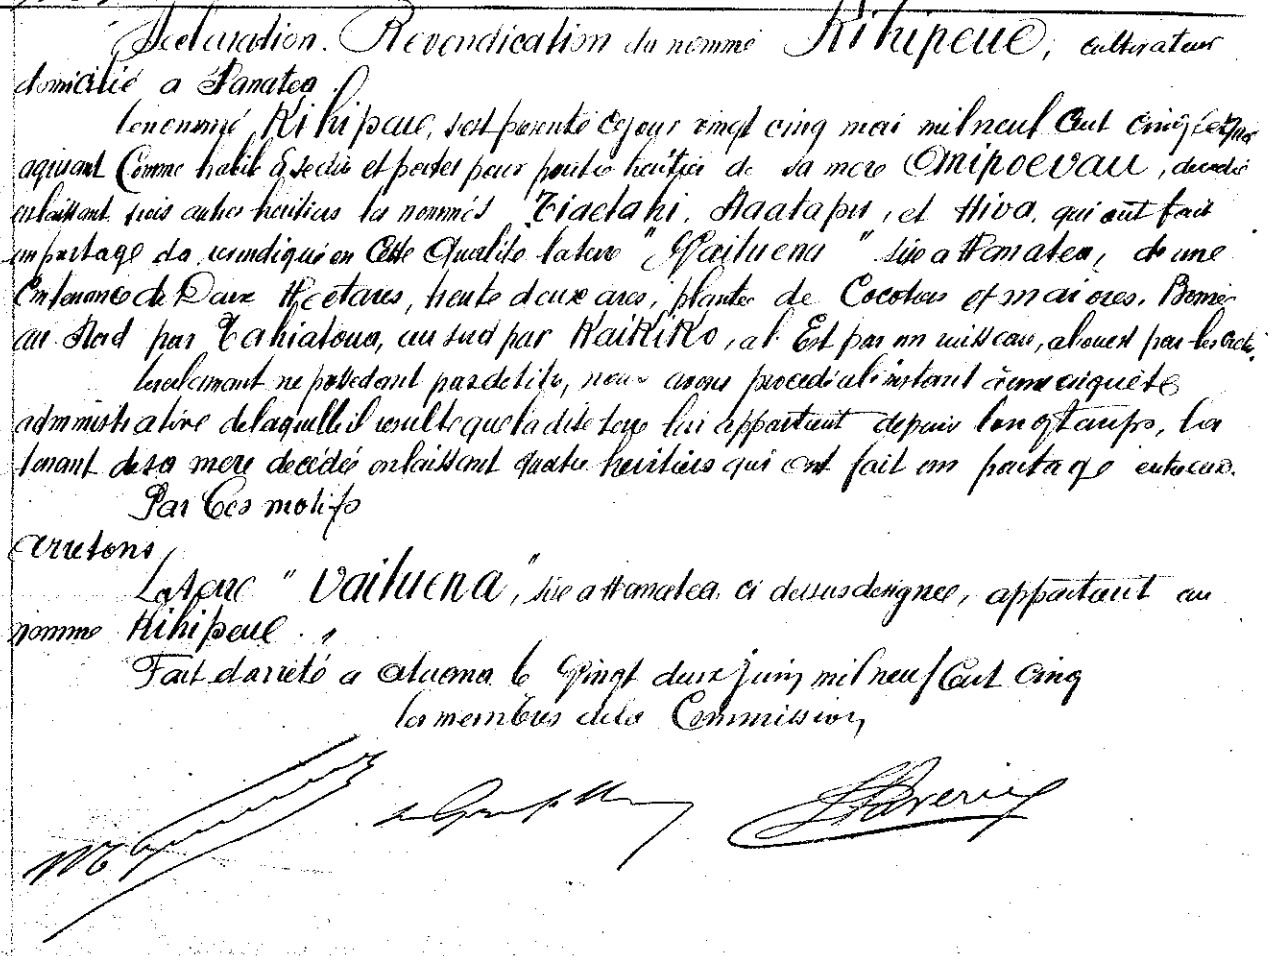 Declaration. Revendication du nommé Kihipeue, cultivateur
domicilié a Hanatea.
Le nommé Kihipeue, s'est presenté ce jour vingt cinq mai mil neuf Cent cinq
agissant Comme habile à se dire et porter pour heritier de sa mere Omipoevau, decedée
en laissant trois autres heritiers les nommés Tiaetahi, Naatapu, et Hiva, qui ont fait
un partage revendique en Cette Qualité la terre "Vaituena" sise a Hanatea, d'une
Contenance de Deux Hectares, trente deux ares, plantée de Cocotiers et maiores. Bornée
au Nord par Tahiatoua, au sud par Kaikiko, a l'Est par un ruisseau, a l'ouest par
Le reclamant ne possedant pas de titre, nous avons procedé à l'instant à une enquête
administrative de laquelle il resulte que la dite terre lui appartient depuis longtemps, la
tenant de sa mere decedée en laissant quatre heritiers qui ont fait un partage entre eux.
Par Ces motifs
arretons
La terre "Vaituena", sise a Hanatea ci dessus designee, appartient au
nommé Kihipeue.
Fait d'arreté a Atuona le Vingt deux juin mil neuf Cent Cinq
Les membres de la Commission,